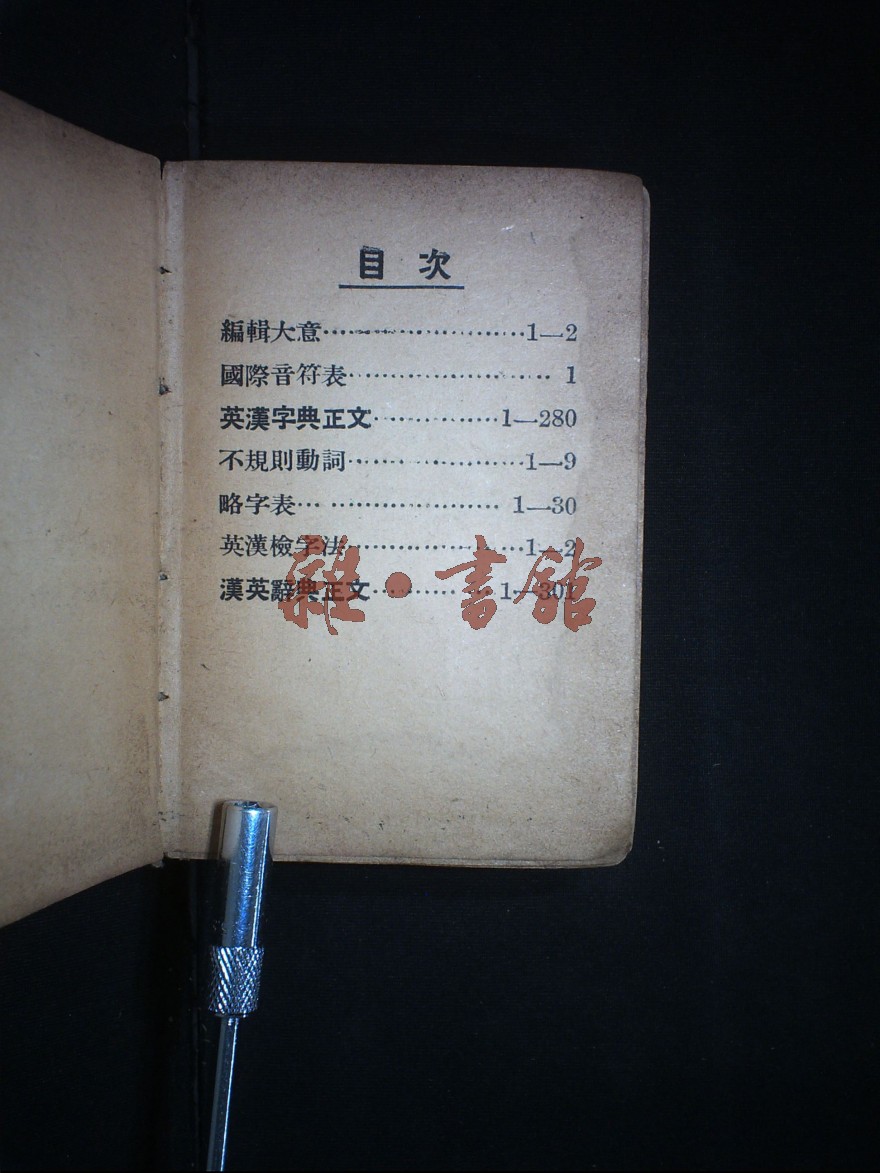 目 次
編輯大意…………………………1—2
國際音符表………………………… 1
英漢字典正文……………1—280
不規則動詞…………………1—9
略字表………………………1—30
英漢檢字法…………………1—2
漢英辭典正文……………1—301
雜·書館